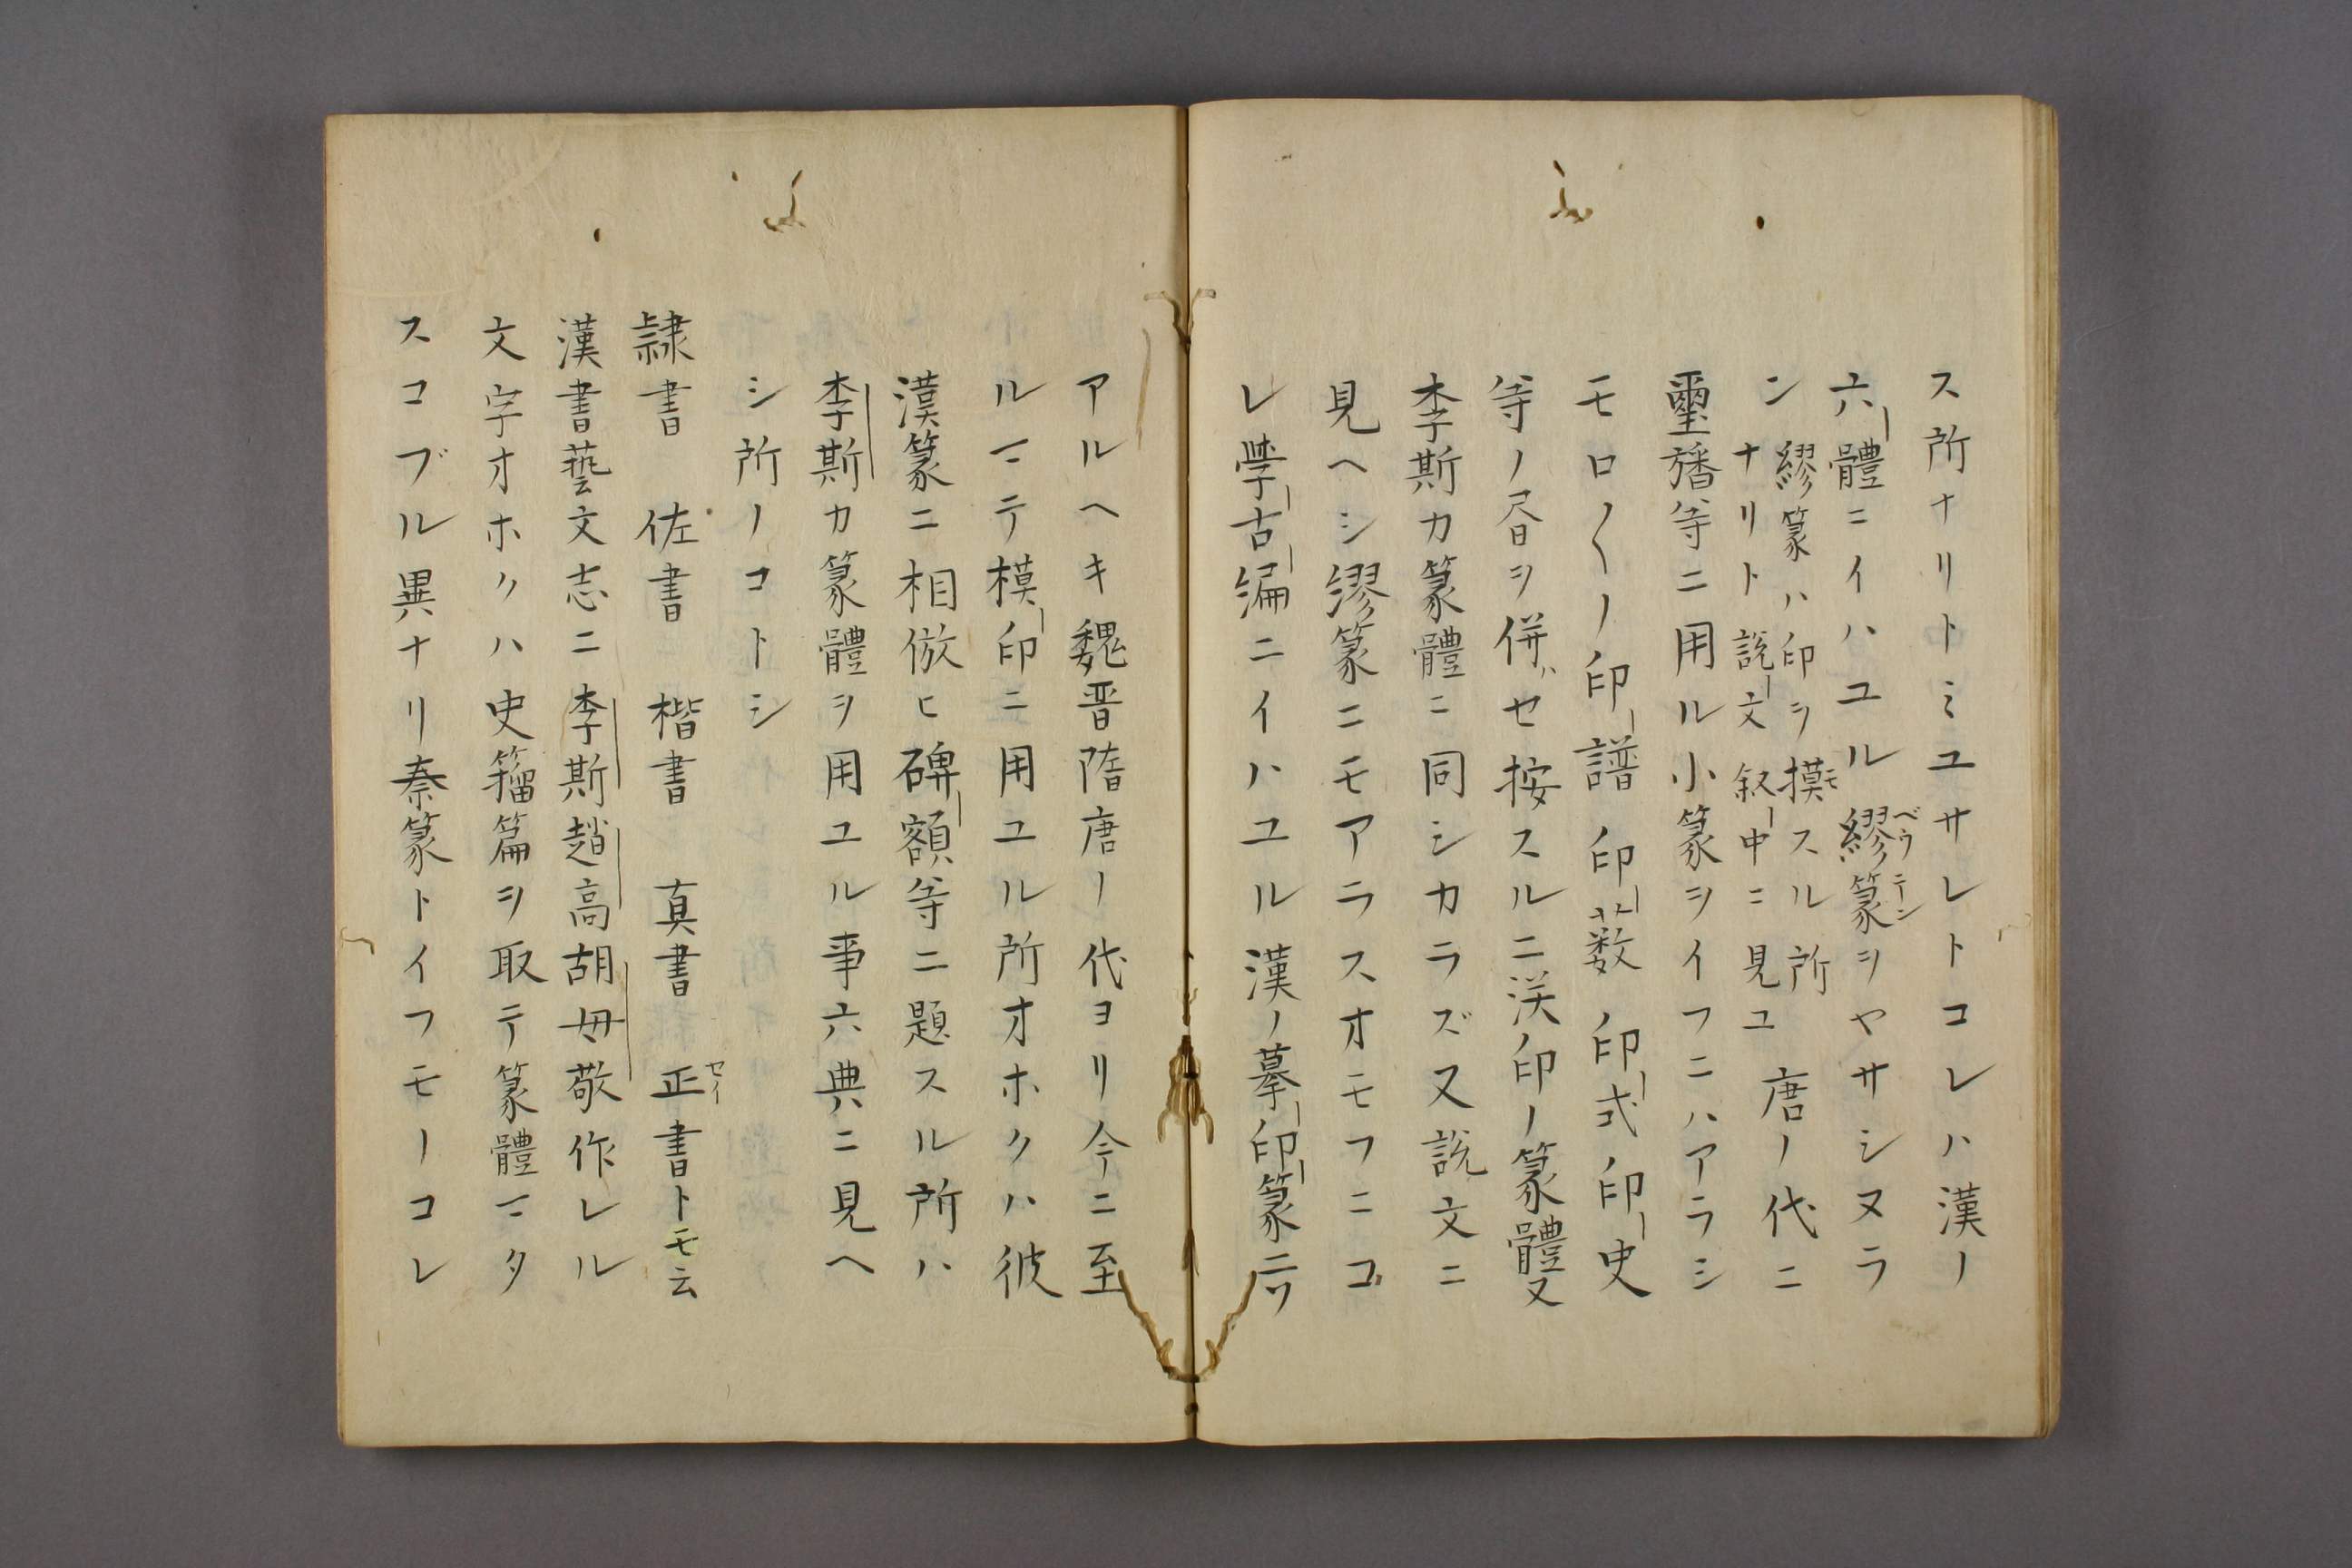 ス所ナリトミユサレトコレハ漢ノ
六體ニイハユル繆篆ヲヤサシヌラ
ベウテン
ン
繆篆ハ印ヲ摸スル所
モ
ナリト説文叙中ニ見ユ
唐ノ代ニ
璽旛等ニ用ル小篆ヲイフニハアラシ
モロ〱ノ印譜印薮ノ印式印史
等ノ昏ヲ併ゼ按スルニ漢印ノ篆體又
李斯カ篆體ニ同シカラズ又説文ニ
見ヘシ繆篆ニモアラスオモフニコ
レ學古編ニイハユル漢ノ摹印篆ニワ
アルヘキ魏晋隋唐ノ代ヨリ今ニ至
ルマテ模印ニ用ユル所オホクハ彼
漢篆ニ相倣ヒ碑額等ニ題スル所ハ
李斯カ篆體ヲ用ユル事六典ニ見ヘ
シ所ノコトシ
隷書 佐書 楷書 真書 正書トモ云
セイ
漢書藝文志ニ李斯趙高胡毋敬作レル
文字オホクハ史籀篇ヲ取テ篆體マタ
スコブル異ナリ秦篆トイフモノコレ